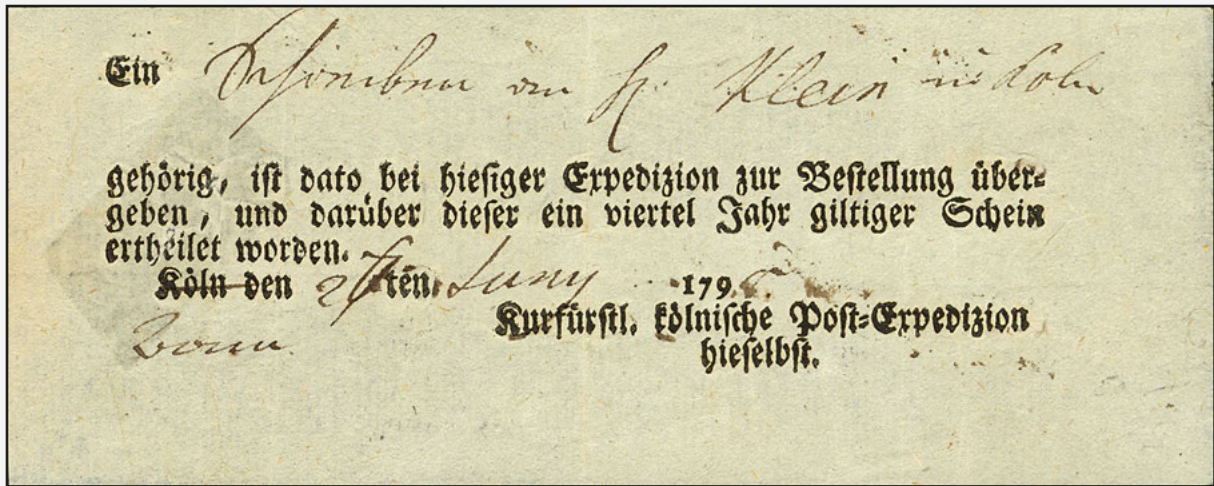 Ein Schreiben an H. Klein in Köln
gehörig, iſt dato bei hieſiger Expedizion zur Beſtellung über-
geben, und darüber dieſer ein viertel Jahr giltiger Schein
ertheilet worden.
Köln den ten Juny 179
Bonn
Kurfürſtl. kölniſche Poſt-Expedizion
hieſelbſt.